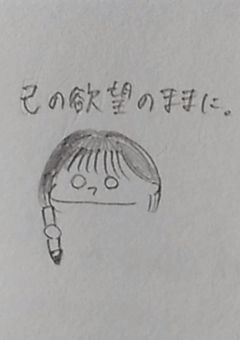 己の欲望のままに。